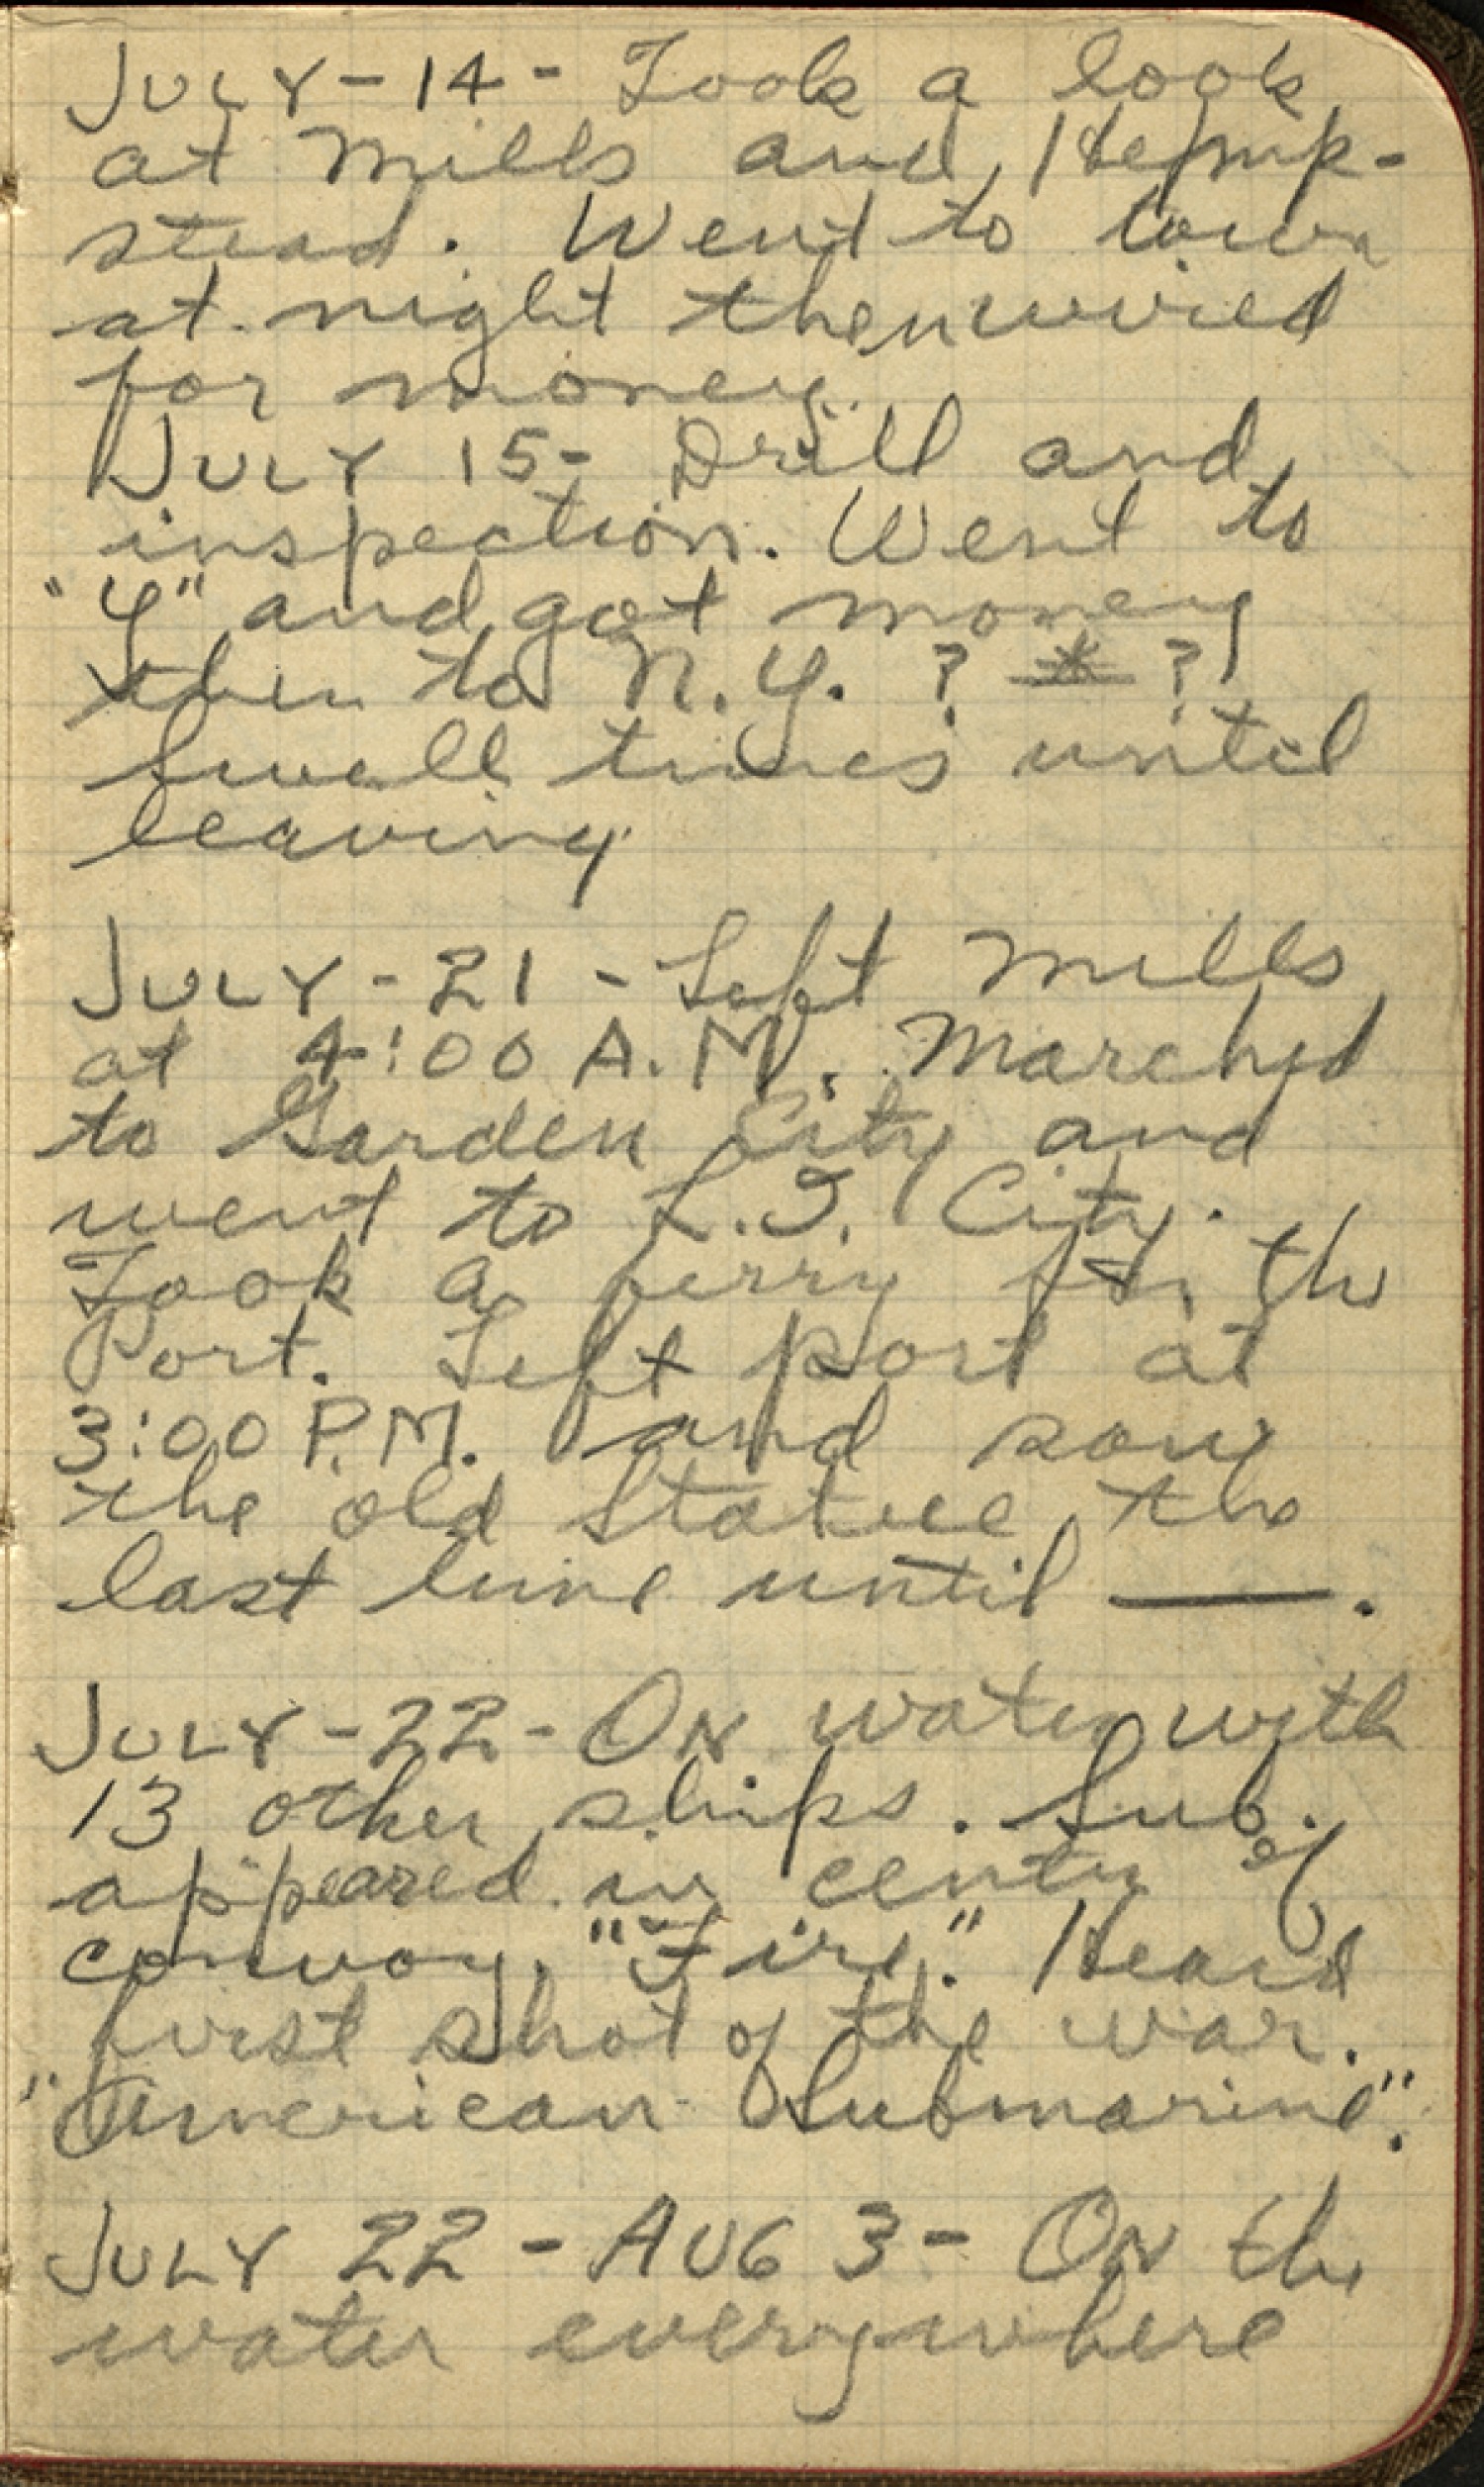 JULY-14- Took a look
at Mills and Hemp-
stead. Went to town
at night then wired
for money.
JULY 15- Drill and
inspection. Went to
"Y" and got money
then to N.Y. ? * ?
Swell times until
leaving.
JULY-21-Left Mills
at 4:00 A.M. Marched
to Garden City and
went to L.I. City.
Took a ferry for the
Port. Left port at
3:00 P.M. and saw
the old Statue the
last time until —.
JULY-22-ON water with
13 other ships. Sub.
appeared in center of
convoy. "Fire." Heard
first shot of the war.
"American Submarine".
JULY 22 - AUG 3- ON the
water everywhere